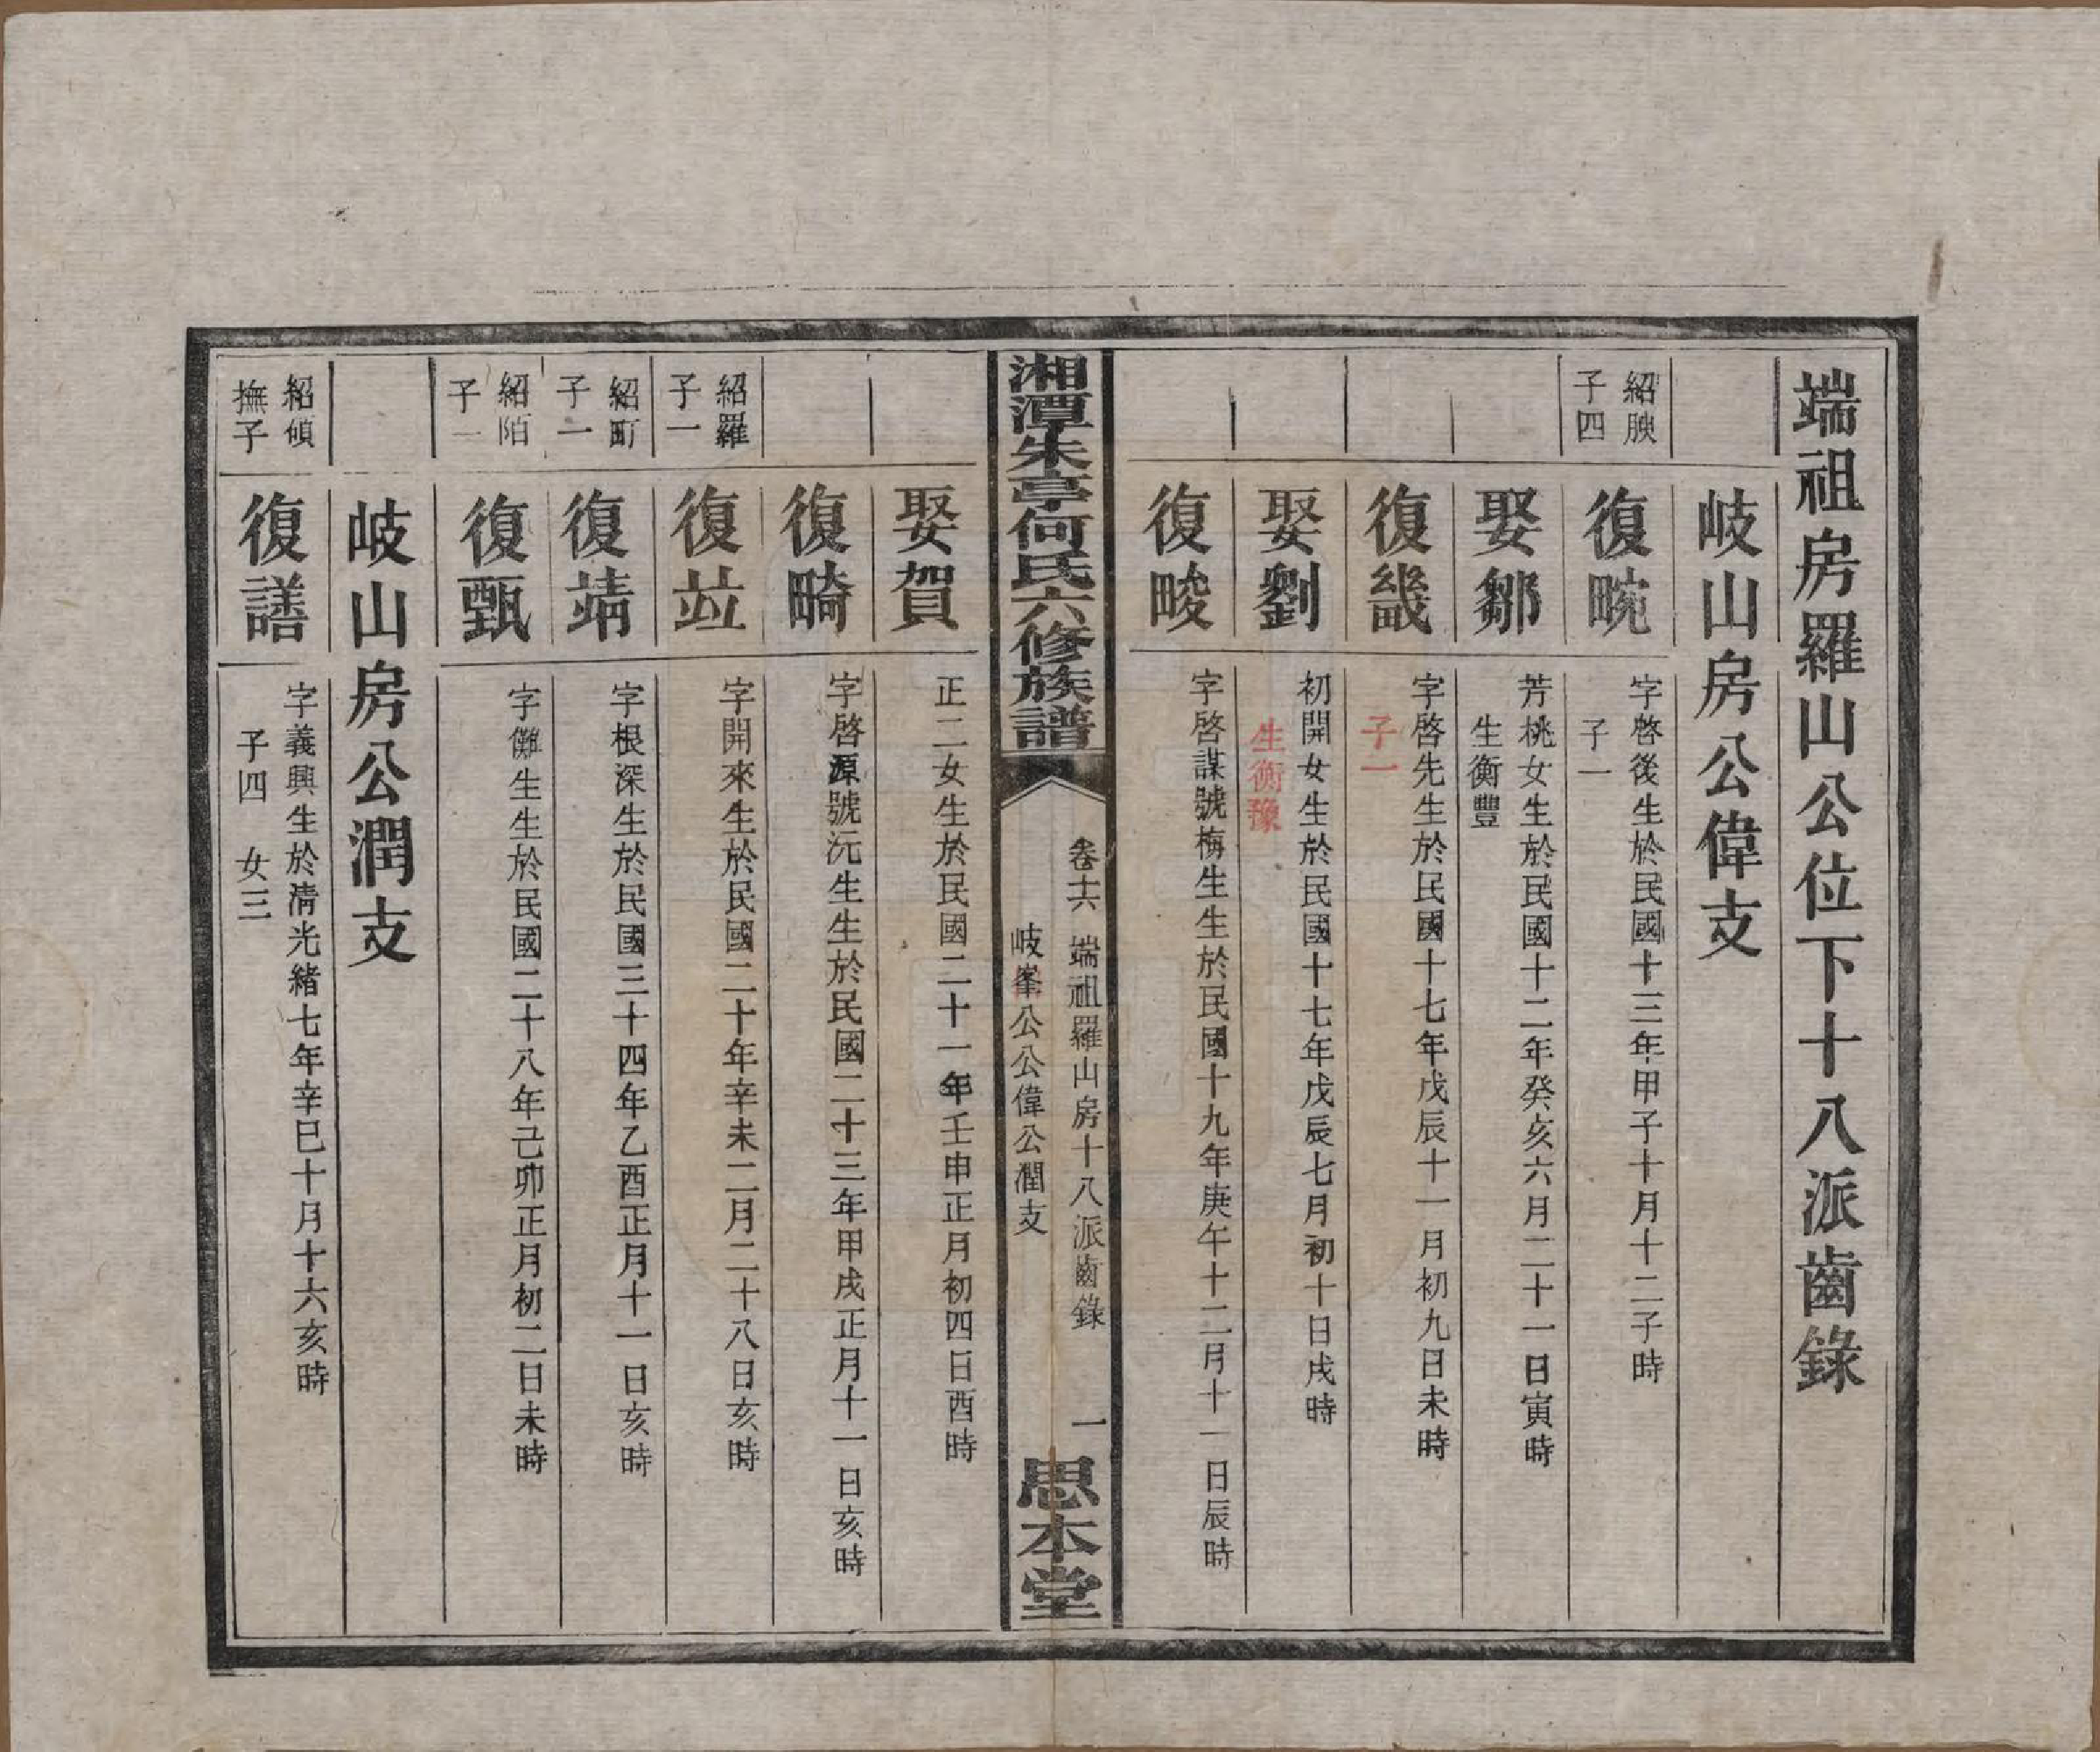 端祖房羅山公位下十八派齒錄
岐山房公偉支
紹腴
子四
復畹
字啓後生於民國十三年甲子十月十二子時
子一
娶鄒
芳桃女生於民國十二年癸亥六月二十一日寅時
生衡豐
復畿
字啓先生於民國十七年戊辰十一月初九日未時
子一
娶劉
初開女生於民國十七年戊辰七月初十日戌時
生衡豫
復畯
字啓謀號梅生生於民國十九年庚午十二月十一日辰時
湘潭朱亭何氏六修族譜
卷十六 端祖羅山房十八派齒錄 一
岐峯公公偉公潤支
思本堂
娶賀
正二女生於民國二十一年壬申正月初四日酉時
復畸
字啓源號沅生生於民國二十三年甲戌正月十一日亥時
紹羅
子一
復竝
字開來生於民國二十年辛未二月二十八日亥時
紹町
子一
復靖
字根深生於民國三十四年乙酉正月十一日亥時
紹陌
子一
復甄
字儺生生於民國二十八年己卯正月初二日未時
岐山房公潤支
紹傾
撫子
復譱
字義興生於清光緒七年辛巳十月十六亥時
子四 女三